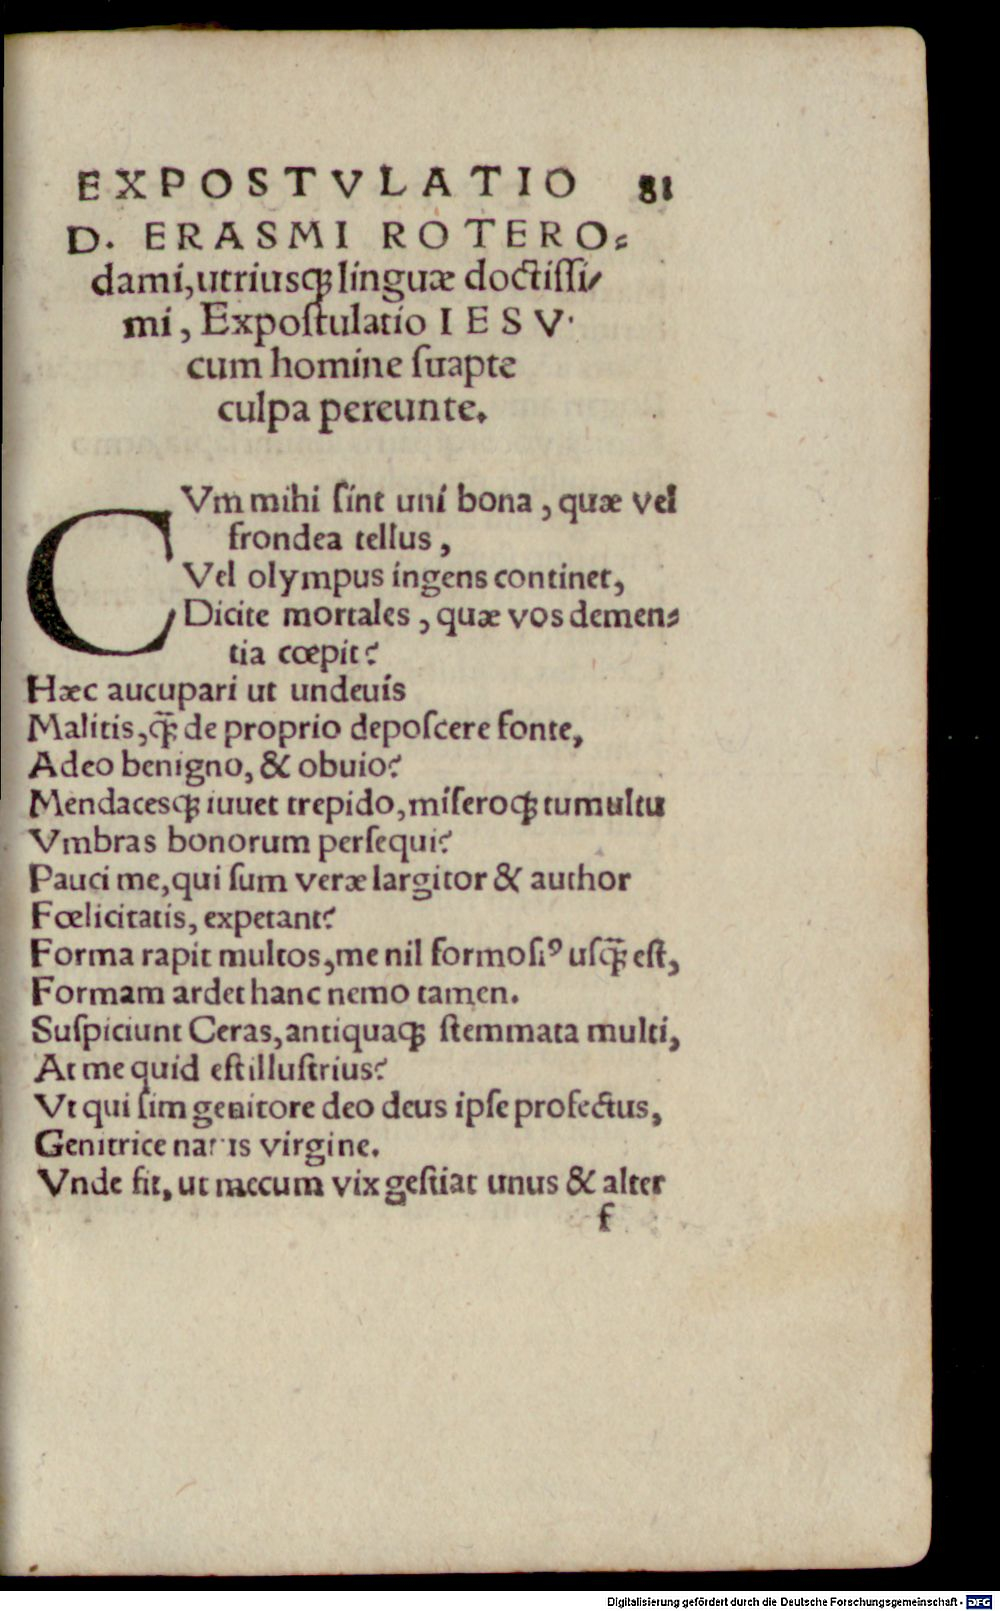 EXPOSTVLATIO 81
D. ERASMI ROTERO⸗
dami, utriusq́ꝫ linguæ doctissi⸗
mi, Expostulatio IESV
cum homine suapte
culpa pereunte.
CVm mihi sint uni bona, quæ vel
frondea tellus,
Vel olympus ingens continet,
Dicite mortales, quæ vos demen⸗
tia cœpit?
Hæc aucupari ut undeuis
Malitis, q̃ꝫ de proprio deposcere fonte,
Adeo benigno, & obuio?
Mendacesqꝫ iuuet trepido, miseroqꝫ tumultu
Vmbras bonorum persequi?
Pauci me, qui sum veræ largitor & author
Fœlicitatis, expetant?
Forma rapit multos, me nil formosiꝰ usq̃ꝫ est,
Formam ardet hanc nemo tamen.
Suspiciunt Ceras, antiquaqꝫ stemmata multi,
At me quid est illustrius?
Vt qui sim genitore deo deus ipse profectus,
Genitrice natus virgine.
Vnde fit, ut mecum vix gestiat unus & alter
f
Digitalisierung gefördert durch die Deutsche Forschungsgemeinschaft - DFG